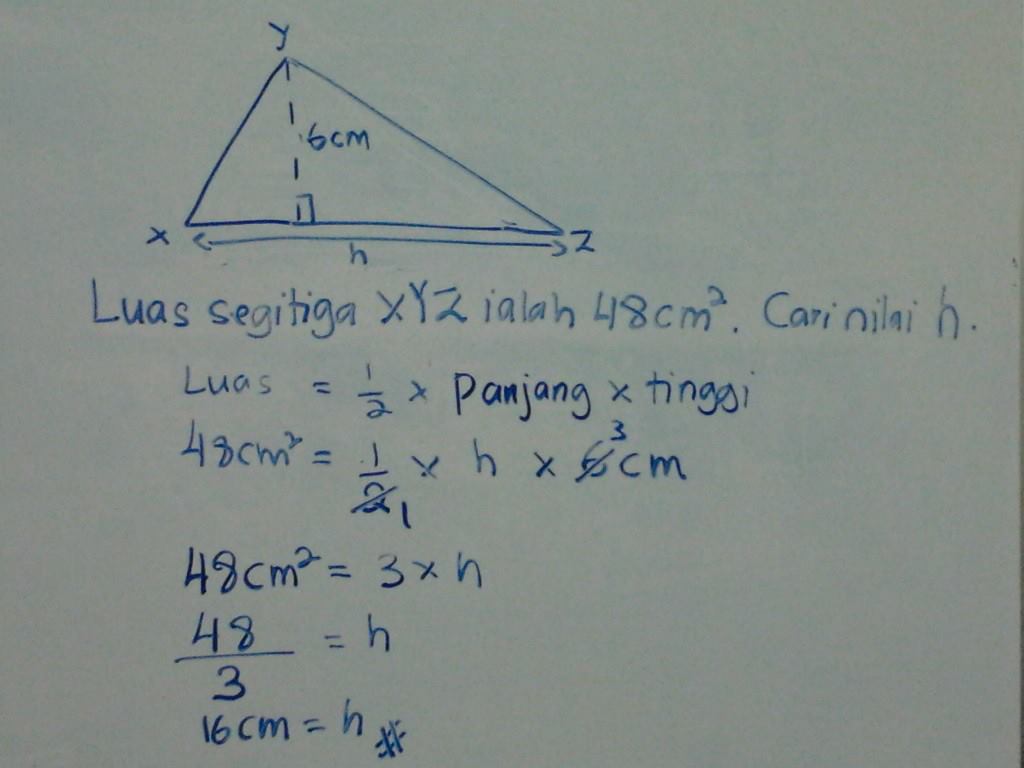 Y
6cm
X
Z
h
Luas segitiga XYZ ialah 48cm². Cari nilai h.
Luas = 1/2 × Panjang × tinggi
48cm² = 1/2 1 × h × 6 3 cm
48cm² = 3 × h
48/3 = h
16cm = h #